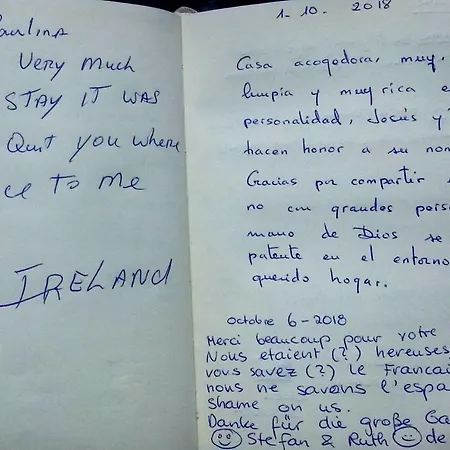 Paulina
Very much
STAY IT WAS
Quit you where
ce To Me
IRELAND
1-10. 2018
Casa acogodora, muy,
limpia y muy rica e
personalidad, Jesús y
hacen honor a su nom
Gracias por compartir
no con grandes perso
mano de Dios se
patente en el entorno
querido hogar.
Octobre 6-2018
Merci beaucoup pour votre
Nous etaient (?) hereuses,
vous savez (?) le Francai
nous ne savons l'espa
Shame on us.
Danke für die große Ga
Stefan & Ruth de